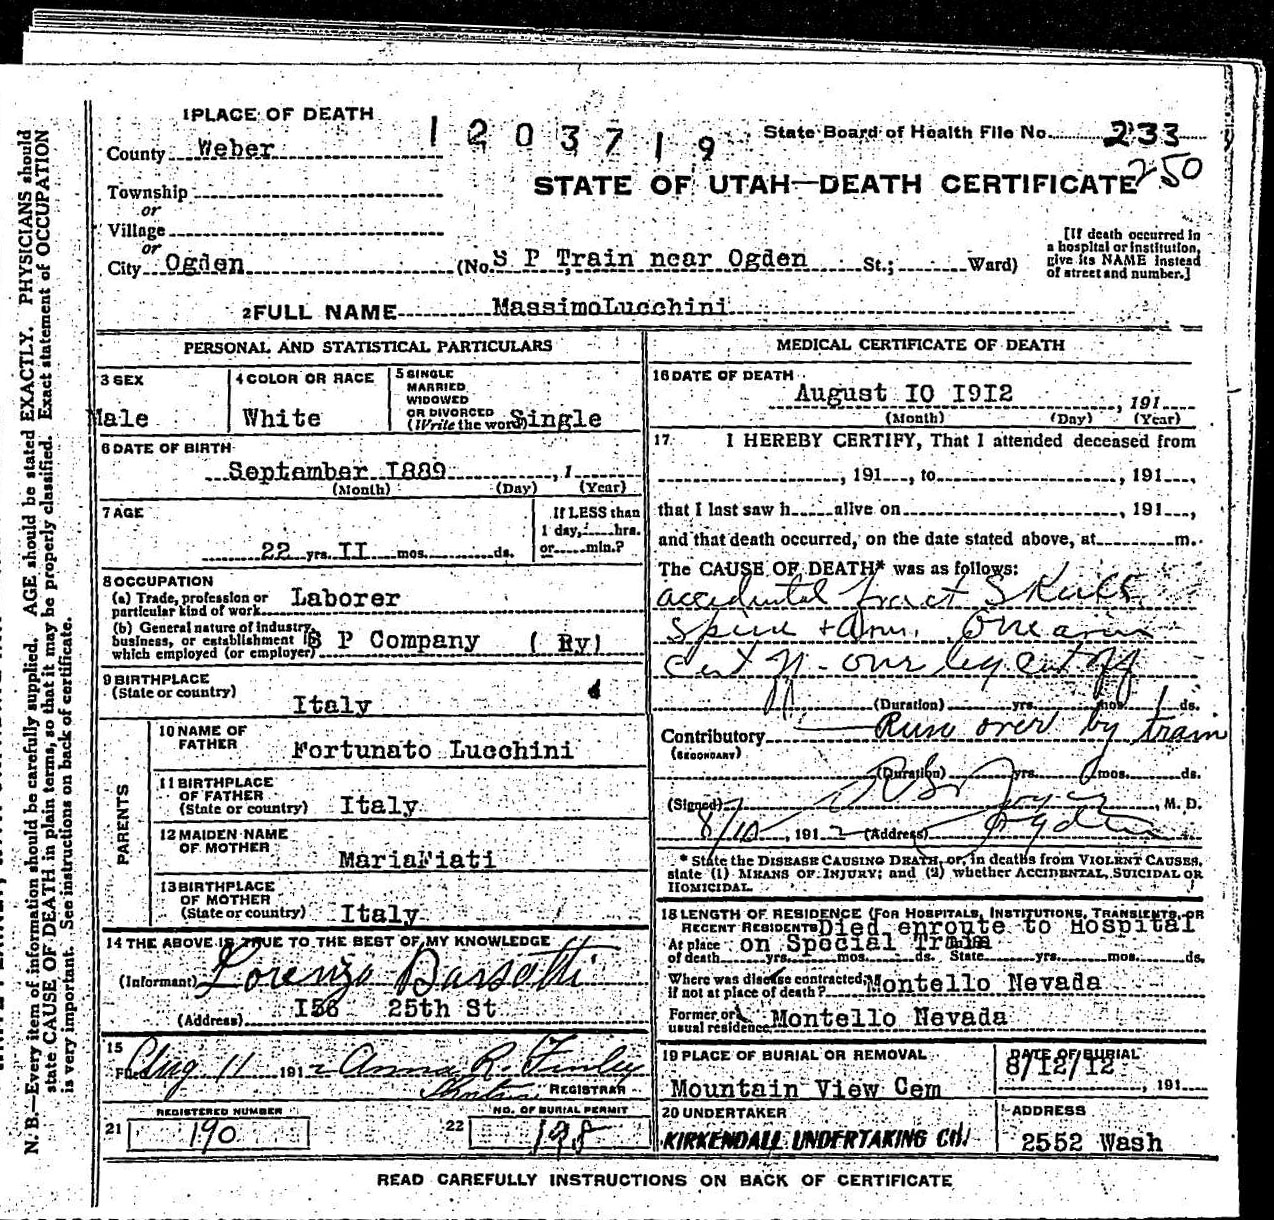 1 PLACE OF DEATH
1203719
State Board of Health File No. 233
250
County Weber
STATE OF UTAH—DEATH CERTIFICATE
Township
or
Village
or
City Ogden (No. S P Train near Ogden St.; Ward)
[If death occurred in
a hospital or institution,
give its NAME instead
of street and number.]
2 FULL NAME MassimoLucchini
PERSONAL AND STATISTICAL PARTICULARS
3 SEX
Male
4 COLOR OR RACE
White
5 SINGLE
MARRIED
WIDOWED
OR DIVORCED
(Write the word) Single
6 DATE OF BIRTH
September I889 , 1
(Month) (Day) (Year)
7 AGE
22 yrs. II mos. ds.
If LESS than
1 day, hrs.
or min.?
8 OCCUPATION
(a) Trade, profession or
particular kind of work Laborer
(b) General nature of industry,
business, or establishment in
which employed (or employer) S P Company ( Ry)
9 BIRTHPLACE
(State or country)
Italy
PARENTS
10 NAME OF
FATHER Fortunato Lucchini
11 BIRTHPLACE
OF FATHER
(State or country) Italy
12 MAIDEN NAME
OF MOTHER
MariaFiati
13 BIRTHPLACE
OF MOTHER
(State or country) Italy
14 THE ABOVE IS TRUE TO THE BEST OF MY KNOWLEDGE
(Informant) Lorenzo Bassetti
(Address) I56 25th St
15
Filed Aug 11 191 2 Anna R. Finley
REGISTRAR
REGISTERED NUMBER
21 190
NO. OF BURIAL PERMIT
22 198
MEDICAL CERTIFICATE OF DEATH
16 DATE OF DEATH
August IO I9I2 , 191
(Month) (Day) (Year)
17 I HEREBY CERTIFY, That I attended deceased from
, 191 , to , 191 ,
that I last saw h alive on , 191 ,
and that death occurred, on the date stated above, at m.
The CAUSE OF DEATH* was as follows:
accidental fract Skull
Spine + Arm. One arm
Cut off - one leg cut off
(Duration) yrs. mos. ds.
Contributory Run over by train
(SECONDARY)
(Duration) yrs. mos. ds.
(Signed) , M. D.
8/10 , 191 2 (Address) Ogden
* State the DISEASE CAUSING DEATH, or, in deaths from VIOLENT CAUSES,
state (1) MEANS OF INJURY; and (2) whether ACCIDENTAL, SUICIDAL OR
HOMICIDAL.
18 LENGTH OF RESIDENCE (FOR HOSPITALS, INSTITUTIONS, TRANSIENTS, OR
RECENT RESIDENTS Died enroute to Hospital
At place on Special Train
of death yrs. mos. ds. State yrs. mos. ds.
Where was disease contracted, Montello Nevada
if not at place of death?
Former or
usual residence Montello Nevada
19 PLACE OF BURIAL OR REMOVAL
Mountain View Cem
DATE OF BURIAL
8/12/12 , 191
20 UNDERTAKER
KIRKENDALL UNDERTAKING CO.
ADDRESS
2552 Wash
READ CAREFULLY INSTRUCTIONS ON BACK OF CERTIFICATE
N. B.—Every item of information should be carefully supplied. AGE should be stated EXACTLY. PHYSICIANS should
state CAUSE OF DEATH in plain terms, so that it may be properly classified. Exact statement of OCCUPATION
is very important. See instructions on back of certificate.